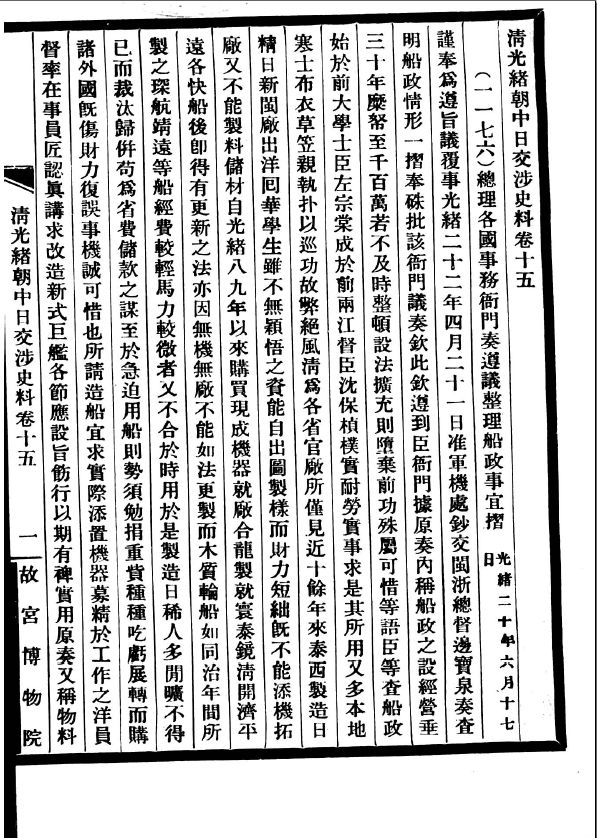 清光緒朝中日交涉史料卷十五
（一一七六）總理各國事務衙門奏遵議整理船政事宜摺 光緒二十年六月十七日
謹奉爲遵旨議覆事光緒二十二年四月二十一日准軍機處鈔交閩浙總督邊寶泉奏査
明船政情形一摺奉硃批該衙門議奏欽此欽遵到臣衙門據原奏內稱船政之設經營垂
三十年糜帑至千百萬若不及時整頓設法擴充則墮棄前功殊屬可惜等語臣等査船政
始於前大學士臣左宗棠成於前兩江督臣沈保楨樸實耐勞實事求是其所用又多本地
寒士布衣草笠親執扑以巡功故弊絕風淸爲各省官廠所僅見近十餘年來泰西製造日
精日新閩廠出洋囘華學生雖不無穎悟之資能自出圖製樣而財力短絀旣不能添機拓
廠又不能製料儲材自光緒八九年以來購買現成機器就廠合龍製就寰泰鏡淸開濟平
遠各快船後卽得有更新之法亦因無機無廠不能如法更製而木質輪船如同治年間所
製之琛航靖遠等船經費較輕馬力較微者又不合於時用於是製造日稀人多閒曠不得
已而裁汰歸併苟爲省費儲款之謀至於急迫用船則勢須勉捐重貲種種吃虧展轉而購
諸外國旣傷財力復誤事機誠可惜也所請造船宜求實際添置機器募精於工作之洋員
督率在事員匠認眞講求改造新式巨艦各節應設旨飭行以期有裨實用原奏又稱物料
清光緒朝中日交涉史料卷十五
一
故宮博物院